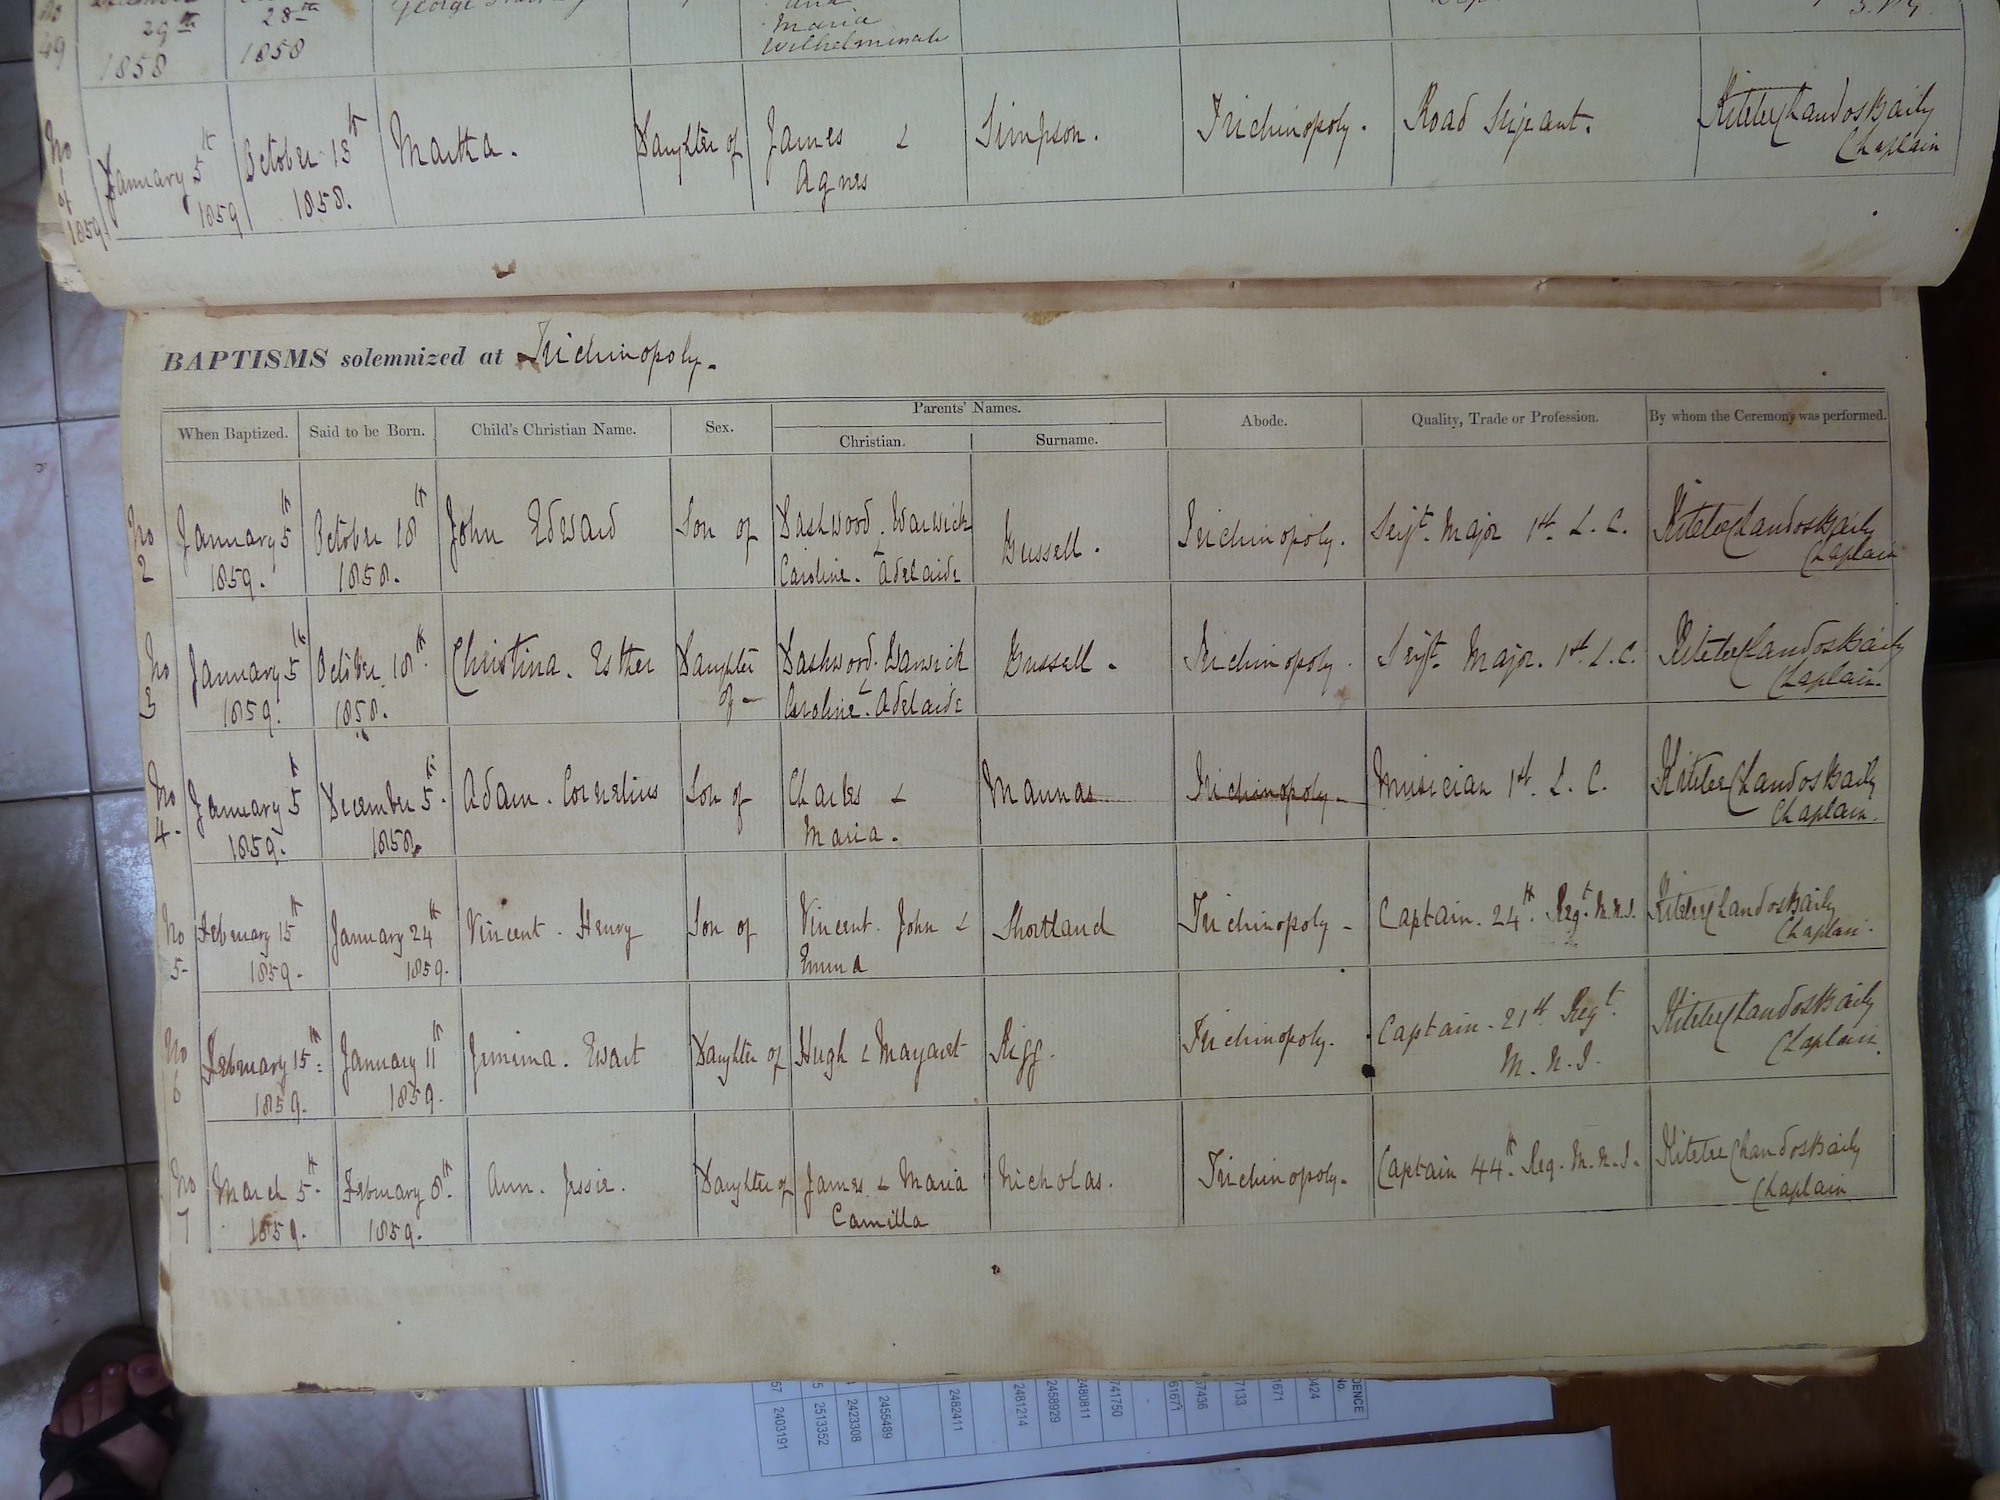 29th
28th
and
Maria
1858
1858
No
1
of
1859
January 5th
1859
October 13th
1858.
Martha.
Daughter of
James &
Agnes
Simpson.
Trichinopoly.
Road Serjeant.
Chaplain
BAPTISMS solemnized at Trichinopoly.
When Baptized.
Said to be Born.
Child's Christian Name.
Sex.
Parents' Names.
Christian.
Surname.
Abode.
Quality, Trade or Profession.
By whom the Ceremony was performed.
No
2
January 5th
1859.
October 18th
1858.
John Edward
Son of
Dashwood. Warwick
&
Caroline. Adelaide
Trichinopoly.
Serjt. Major 1st L. C.
Chaplain
No
3
January 5th
1859.
October 18th.
1858.
Christina. Esther
Daughter
of -
Dashwood. Warwick
&
Caroline. Adelaide
Trichinopoly.
Serjt. Major. 1st. L. C.
Chaplain.
No
4.
January 5th
1859.
December 5th.
1858.
Adam. Cornelius
Son of
Charles &
Maria.
Trichinopoly.
Musician 1st. L. C.
Chaplain.
No
5-
February 15th
1859.
January 24th
1859.
Vincent. Henry
Son of
Vincent. John &
Emma
Shortland
Trichinopoly -
Captain. 24th. Regt. M.N.I.
Chaplain.
No
6
February 15th.
1859.
January 11th
1859.
Jemima. Ewart
Daughter of
Hugh & Margaret
Rigg.
Trichinopoly.
Captain. 21st Regt.
M. N. I.
Chaplain.
No
7
March 5th.
1859.
February 8th.
1859.
Ann. Jessie.
Daughter of
James & Maria
Camilla
Nicholas.
Trichinopoly.
Captain 44th. Reg. M.N.I.
Chaplain
2403191
2513352
2423308
2455489
2482411
2481214
2458929
2480811
741750
61671
57436
7133
1671
0424
DENCE
No.